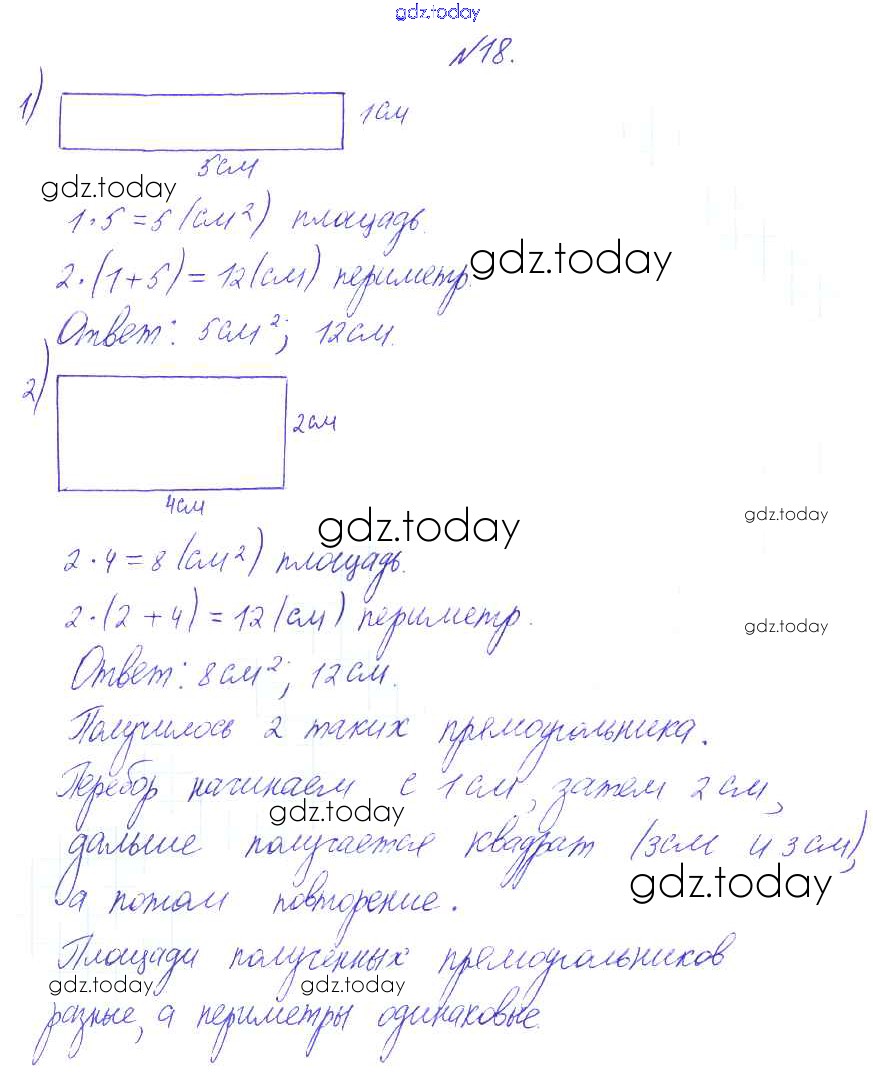 gdz.today
№18.
1)
1см
5см
gdz.today
1·5=5(см²) площадь.
gdz.today
2·(1+5)=12(см) периметр.
Ответ: 5см²; 12см.
2)
2см
4см
gdz.today
gdz.today
2·4=8(см²) площадь.
2·(2+4)=12(см) периметр.
gdz.today
Ответ: 8см²; 12см.
Получилось 2 таких прямоугольника.
Перебор начинаем с 1см, затем 2см,
gdz.today
дальше получается квадрат (3см и 3см),
gdz.today
а потом повторение.
Площади полученных прямоугольников
gdz.today
gdz.today
разные, а периметры одинаковые.